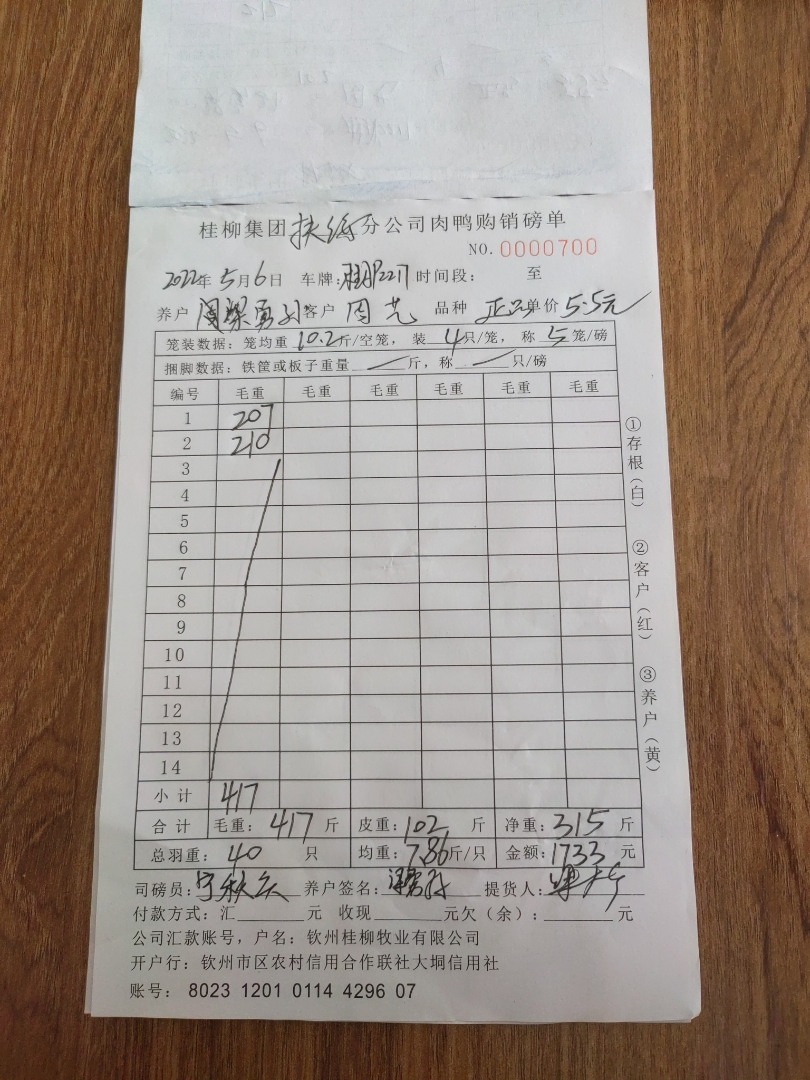 桂柳集团扶绥分公司肉鸭购销磅单
NO.0000700
2022年5月6日 车牌: 时间段: 至
养户 客户 周艺 品种 正品 单价 5.5元
笼装数据: 笼均重10.2斤/空笼, 装4只/笼, 称5笼/磅
捆脚数据: 铁筐或板子重量 斤, 称 只/磅
编号 毛重 毛重 毛重 毛重 毛重 毛重
1 207
2 210
3
4
5
6
7
8
9
10
11
12
13
14
小计 417
合计 毛重: 417 斤 皮重: 102 斤 净重: 315 斤
总羽重: 40 只 均重: 7.86斤/只 金额: 1733 元
司磅员: 养户签名: 提货人:
付款方式: 汇 元 收现 元欠(余): 元
公司汇款账号, 户名: 钦州桂柳牧业有限公司
开户行: 钦州市区农村信用合作联社大垌信用社
账号: 8023 1201 0114 4296 07
①存根(白)
②客户(红)
③养户(黄)